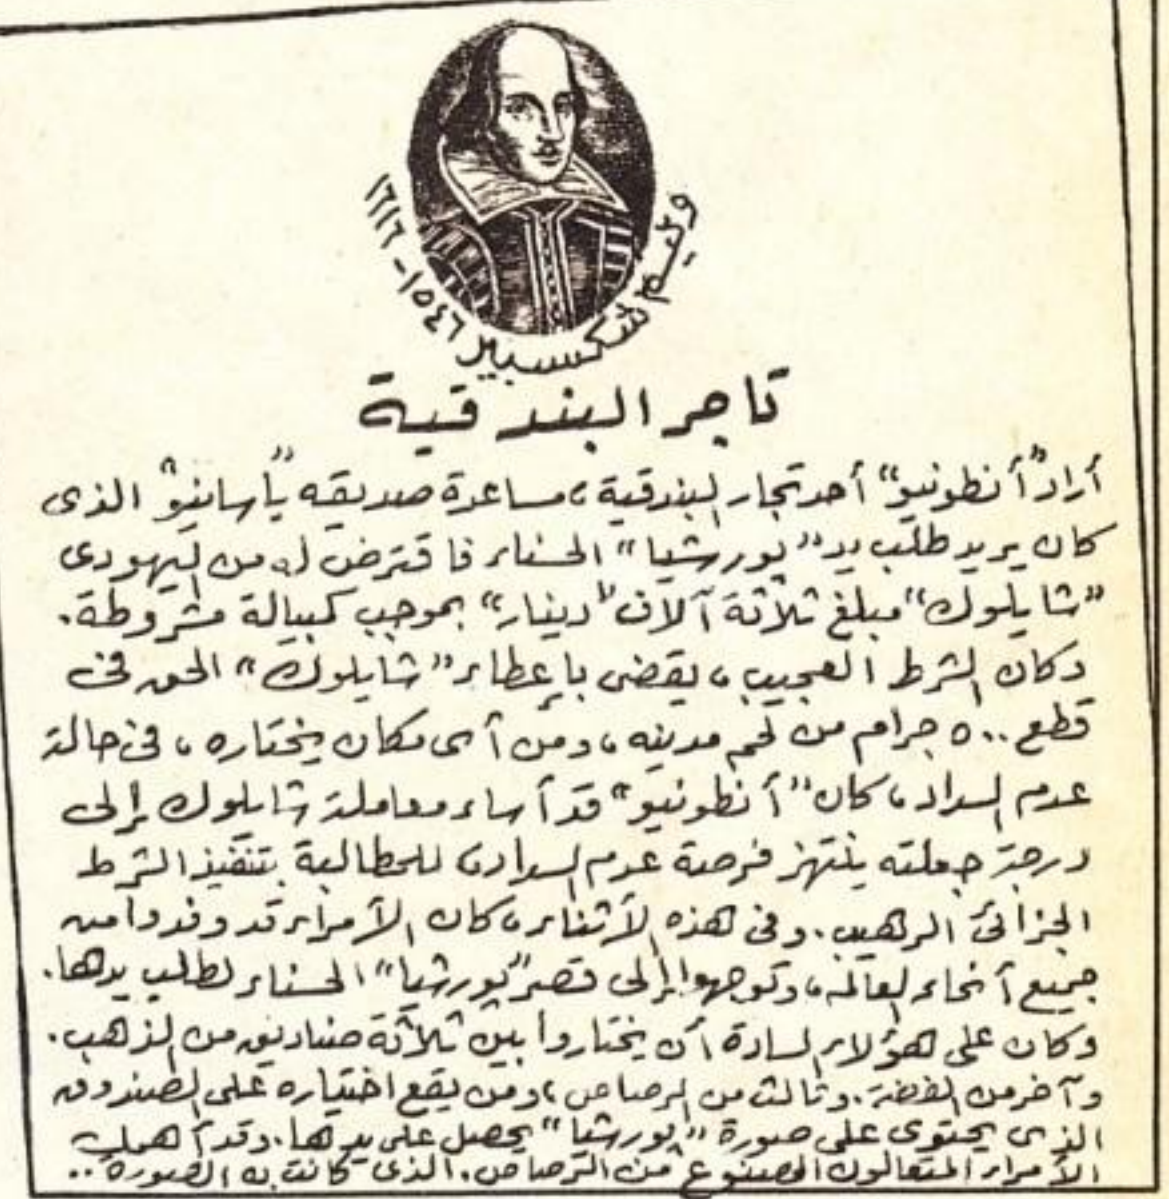 وليم شكسبير ١٥٤٦ - ١٦١٦
تاجر البندقية
أراد "أنطونيو" أحد تجار البندقية، مساعدة صديقه "باسانيو" الذى
كان يريد طلب يد "بورشيا" الحسناء فاقترض له من اليهودى
"شايلوك" مبلغ ثلاثة آلاف "دينار" بموجب كمبيالة مشروطة.
وكان الشرط العجيب، يقضى بإعطاء "شايلوك" الحق فى
قطع ٥٠٠ جرام من لحم مدينه، ومن أى مكان يختاره، فى حالة
عدم السداد، كان "أنطونيو" قد أساء معاملة شايلوك إلى
درجة جعلته ينتهز فرصة عدم السداد، للمطالبة بتنفيذ الشرط
الجزائى الرهيب. وفى هذه الأثناء، كان الأمراء قد وفدوا من
جميع أنحاء العالم، وتوجهوا إلى قصر "بورشيا" الحسناء لطلب يدها.
وكان على هؤلاء السادة أن يختاروا بين ثلاثة صناديق من الذهب.
وآخر من الفضة. وثالث من الرصاص، ومن يقع اختياره على الصندوق
الذى يحتوى على صورة "بورشيا" يحصل على يدها. وقد أهمل
الأمراء المتعالون المصنوع من الرصاص. الذى كانت به الصورة..